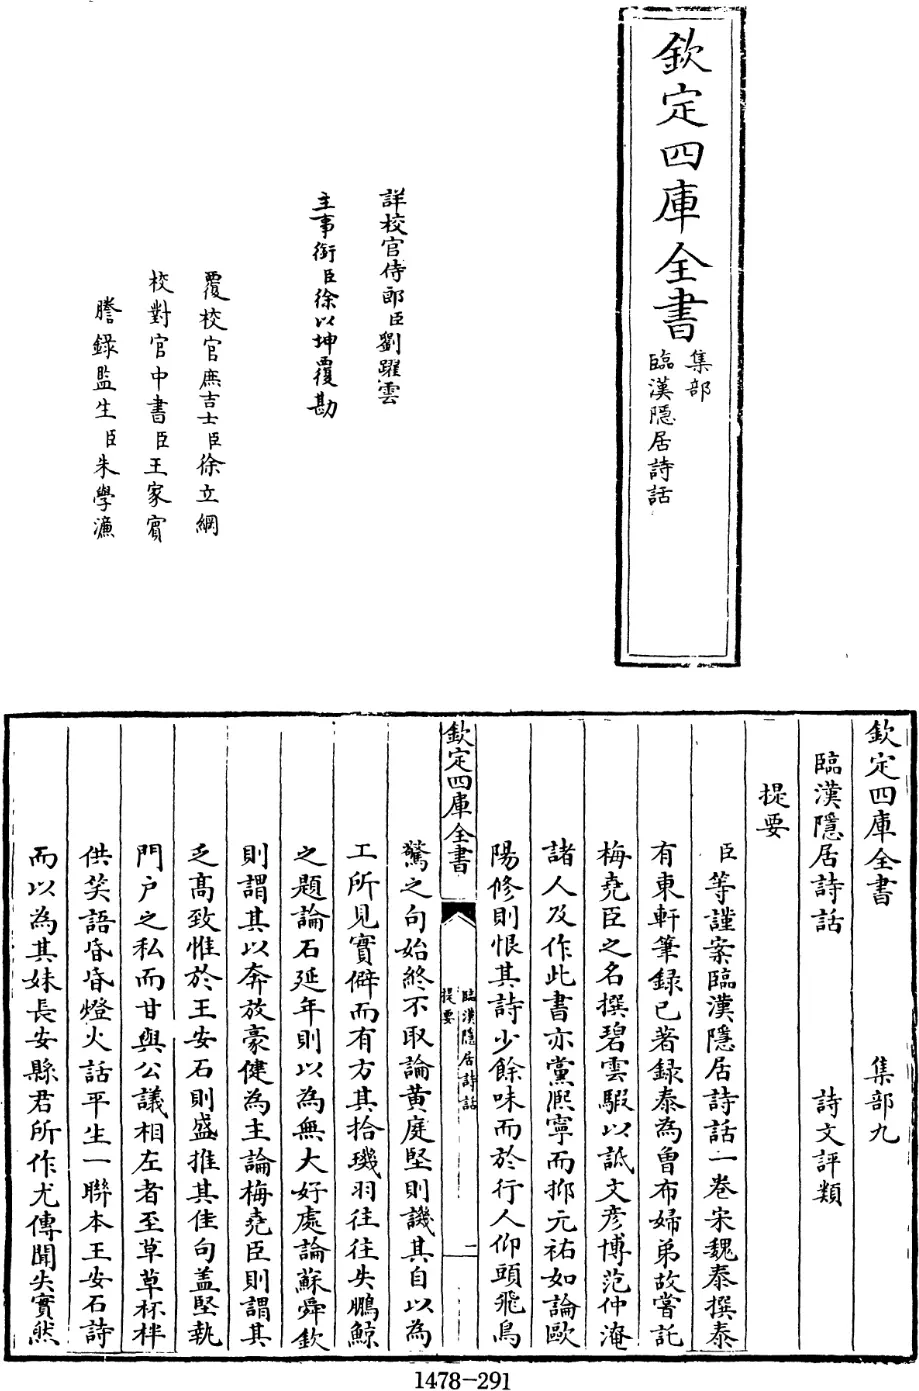 欽定四庫全書
集部
臨漢隱居詩話
詳校官侍郎臣劉躍雲
主事銜臣徐以坤覆勘
覆校官庶吉士臣徐立綱
校對官中書臣王家賓
謄錄監生臣朱學濂
欽定四庫全書 集部九
臨漢隱居詩話 詩文評類
提要
臣等謹案臨漢隱居詩話一卷宋魏泰撰泰
有東軒筆録已著録泰為曾布婦弟故嘗託
梅堯臣之名撰碧雲騢以詆文彥博范仲淹
諸人及作此書亦黨熈寧而抑元祐如論歐
陽修則恨其詩少餘味而於行人仰頭飛鳥
欽定四庫全書
臨漢隱居詩話
提要
一
驚之句始終不取論黄庭堅則譏其自以為
工所見實僻而有方其拾璣羽往往失鵬鯨
之題論石延年則以為無大好處論蘇舜欽
則謂其以奔放豪健為主論梅堯臣則謂其
乏髙致惟於王安石則盛推其佳句盖堅執
門户之私而甘與公議相左者至草草杯柈
供笑語昏昏燈火話平生一聯本王安石詩
而以為其妹長安縣君所作尤傳聞失實然
1478-291